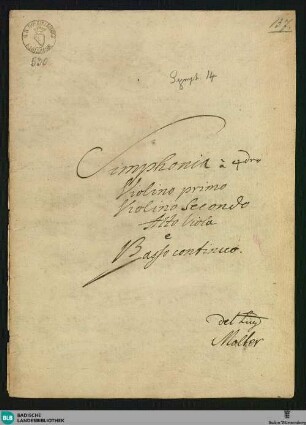 137.
836
Symph. 14
Simphonia à qdro
Violino primo
Violino Secondo
Alto Viola
e
Basso continuo.
del Sig
Molter
BLB BADISCHE
LANDESBIBLIOTHEK
Baden-Württemberg